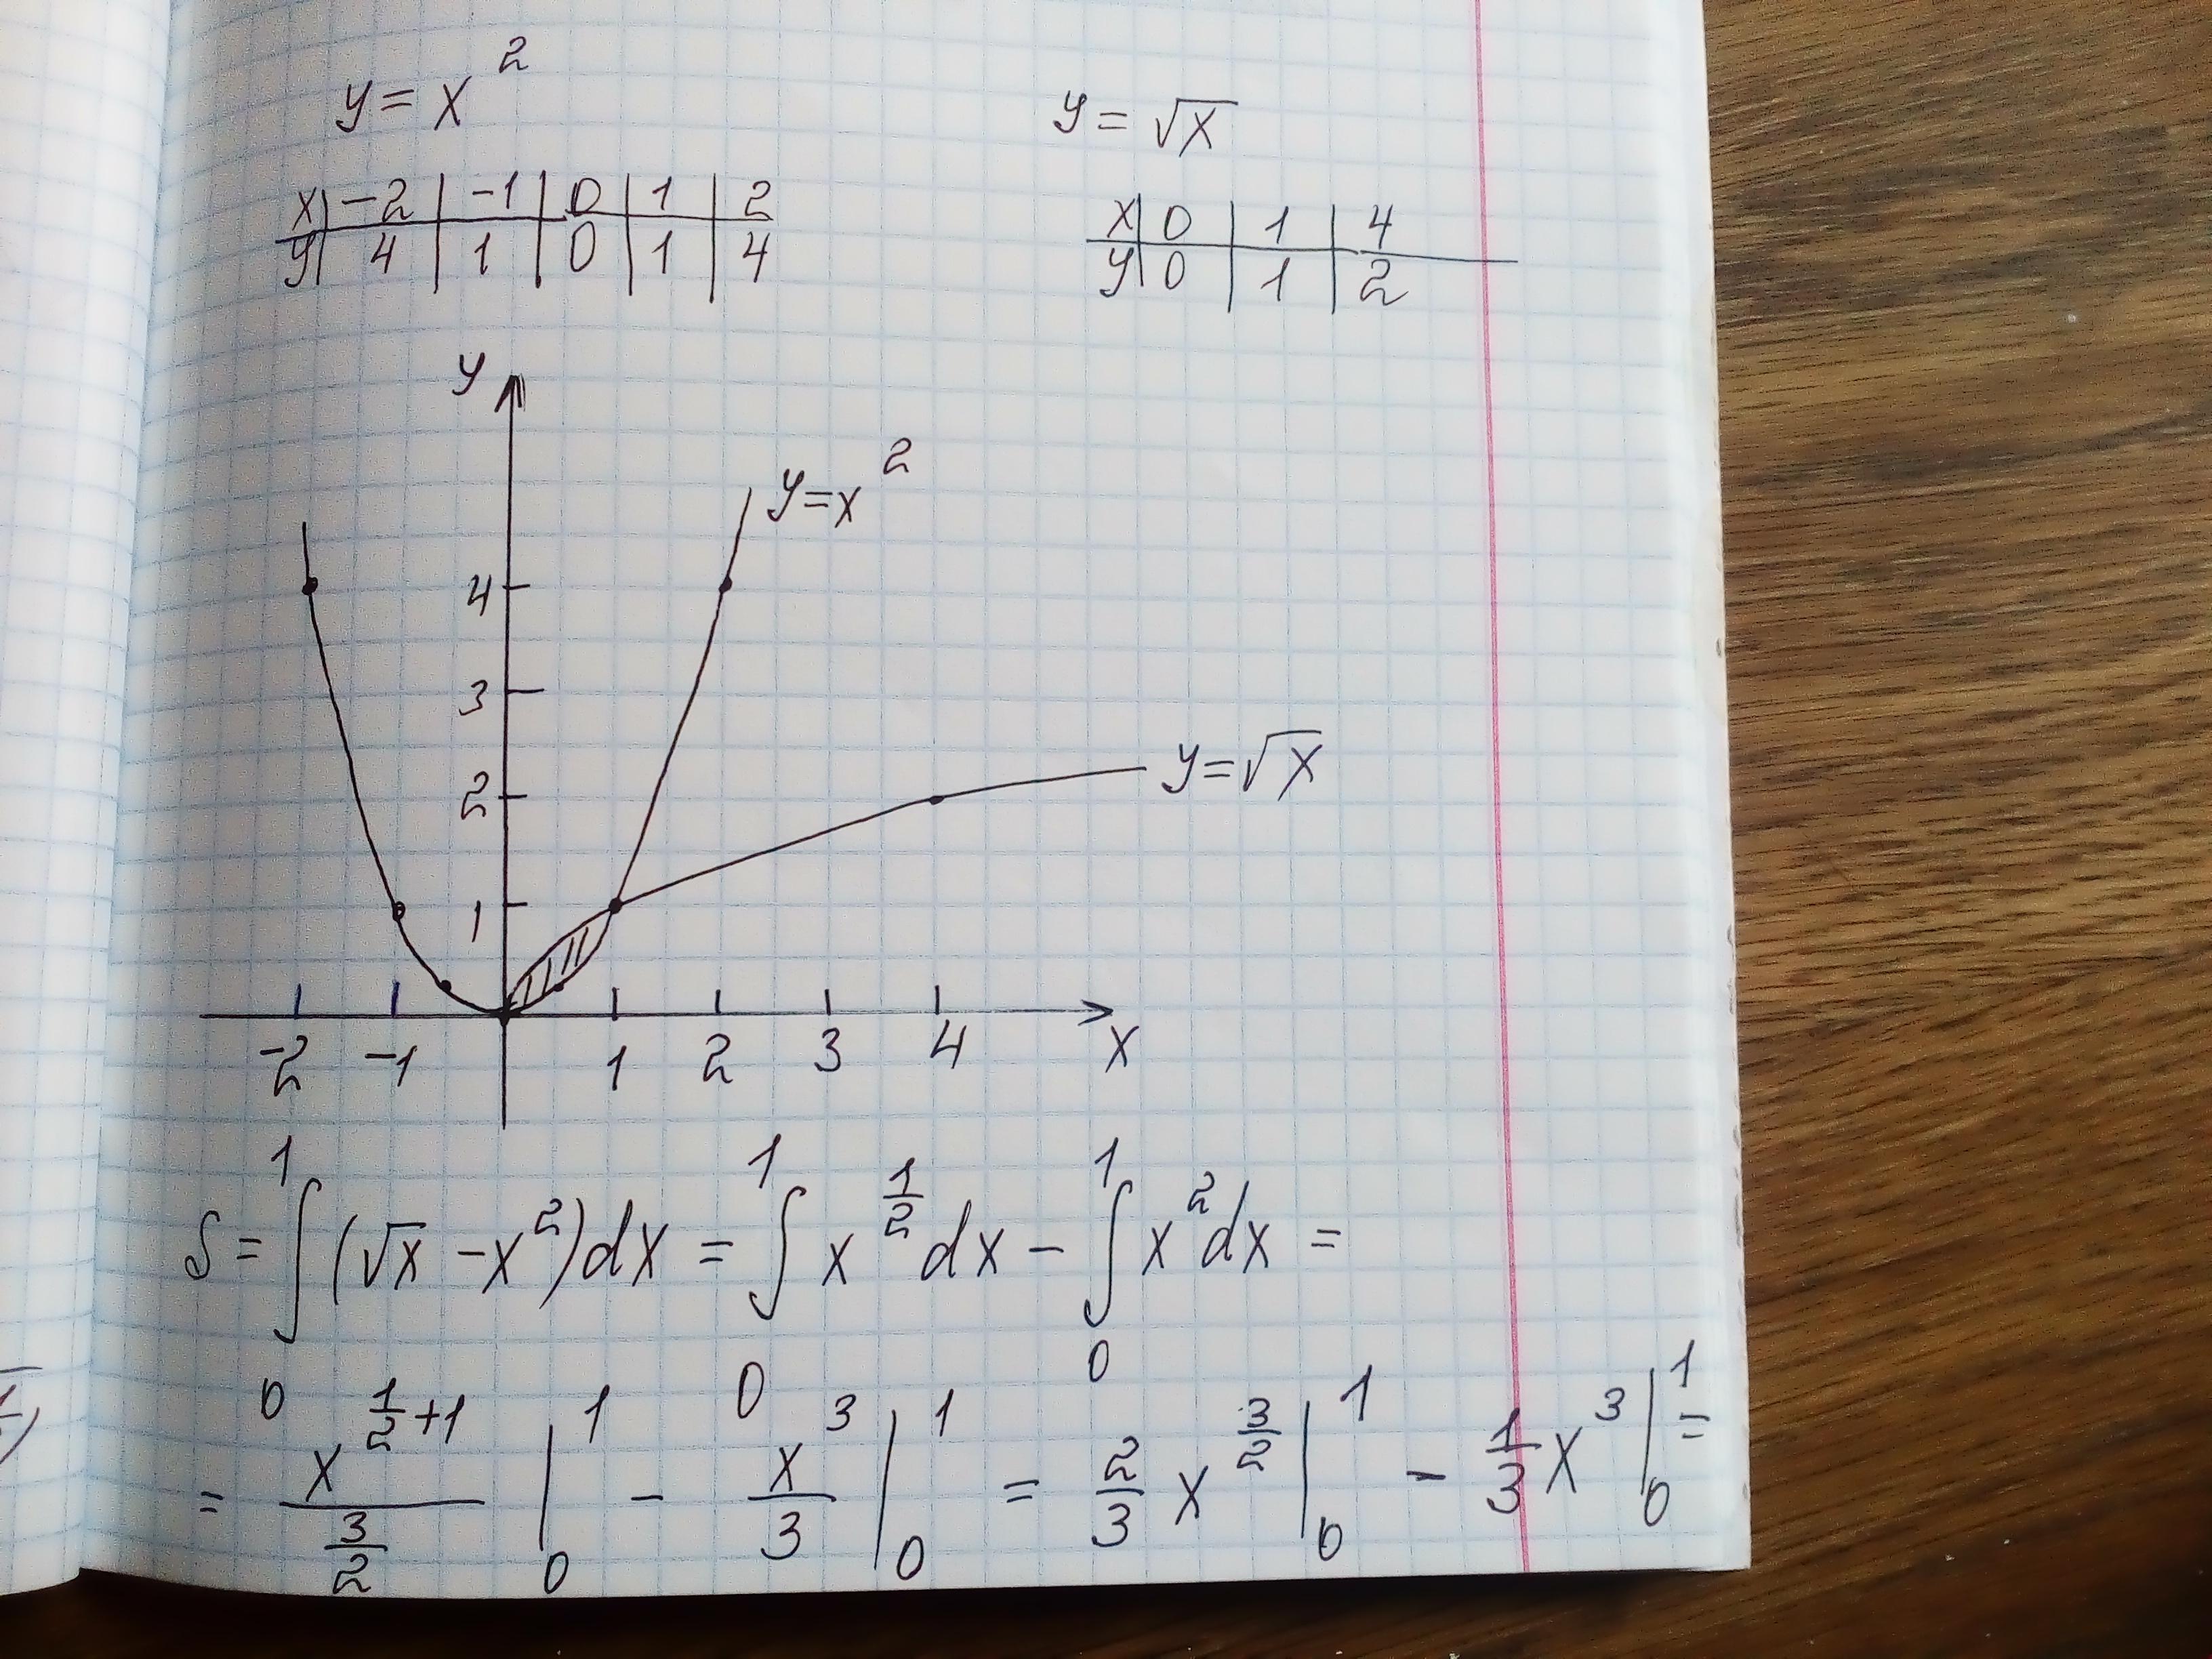 y = x²
y = √x
x | -2 | -1 | 0 | 1 | 2
y | 4 | 1 | 0 | 1 | 4
x | 0 | 1 | 4
y | 0 | 1 | 2
y
y=x²
4
3
y=√x
2
1
-2 -1 1 2 3 4 x
S = ∫₀¹ (√x - x²)dx = ∫₀¹ x^(1/2) dx - ∫₀¹ x² dx =
= x^(1/2+1)/(3/2) |₀¹ - x³/3 |₀¹ = 2/3 x^(3/2) |₀¹ - 1/3 x³ |₀¹ =